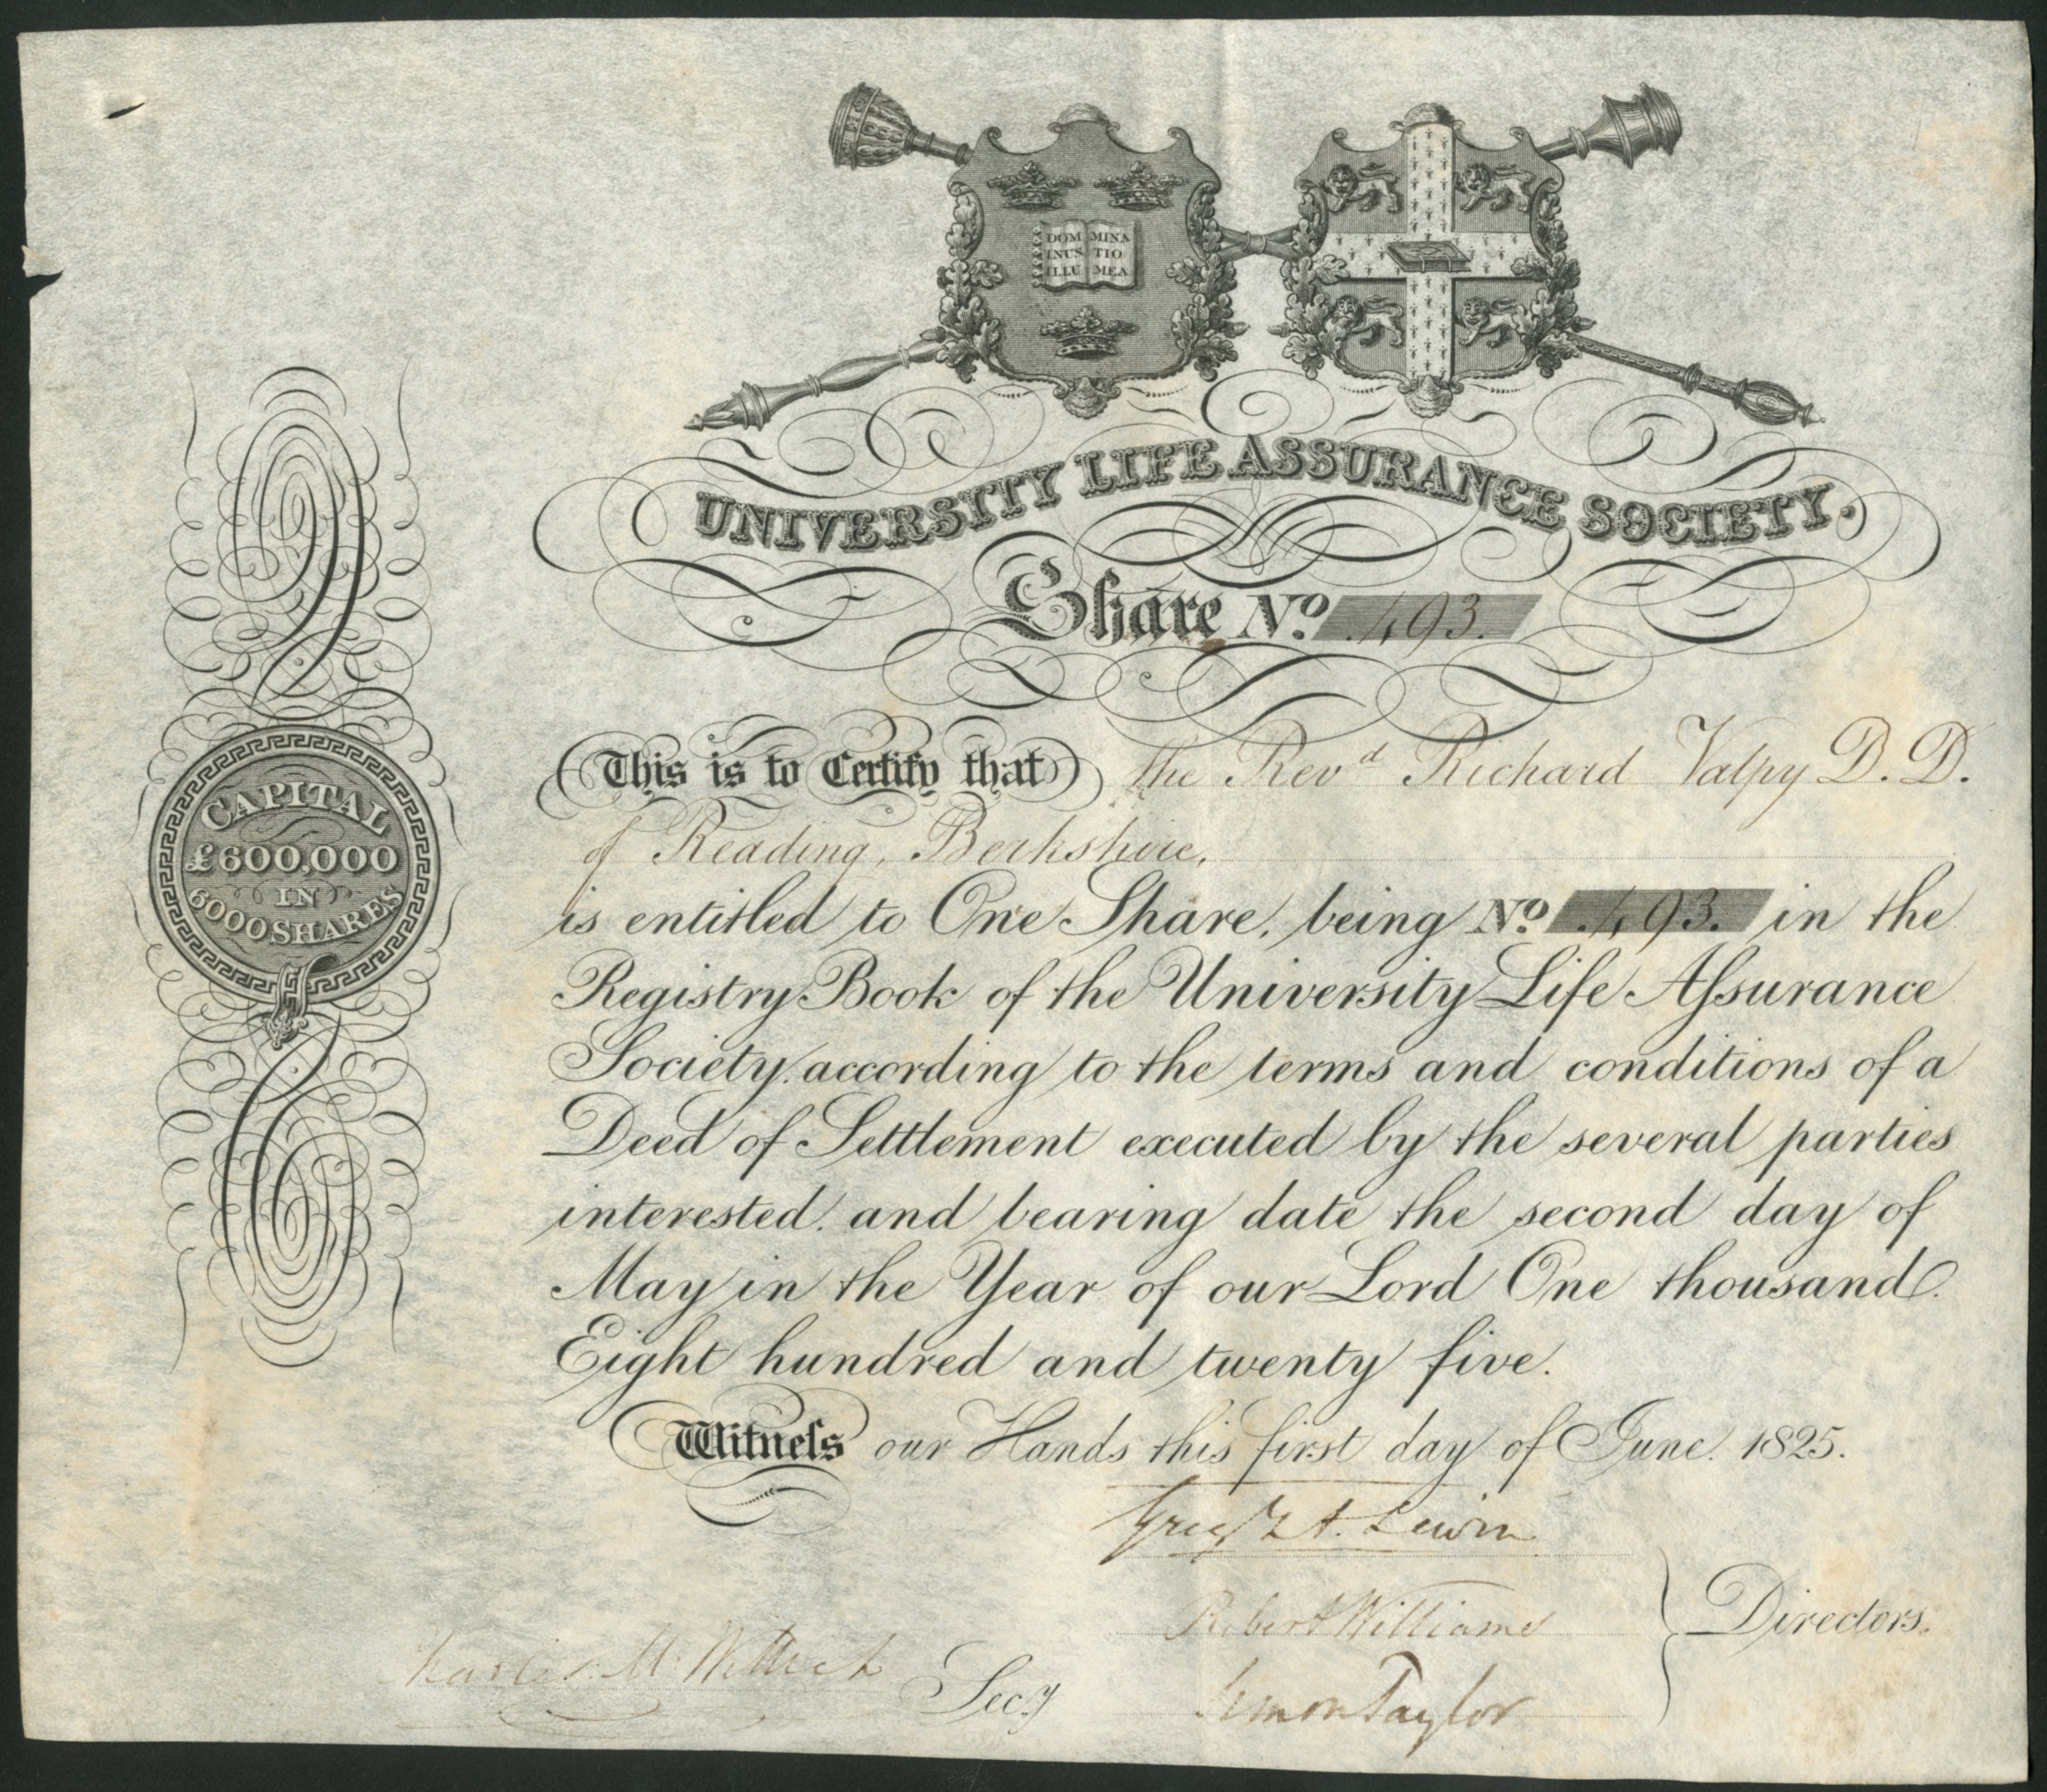 DOM MINA
INUS TIO
ILLU MEA
UNIVERSITY LIFE ASSURANCE SOCIETY.
Share No. 493.
This is to Certify that the Revd Richard Valpy D.D.
of Reading, Berkshire,
is entitled to One Share, being No. 493. in the
Registry Book of the University Life Aſsurance
Society, according to the terms and conditions of a
Deed of Settlement executed by the several parties
interested, and bearing date the second day of
May in the Year of our Lord One thousand
Eight hundred and twenty five.
Witneſs our Hands this first day of June 1825.
CAPITAL
£600,000
IN
6000 SHARES
A. Lewin
Robert Williams
Directors.
Simon Taylor
Charles M. Secy